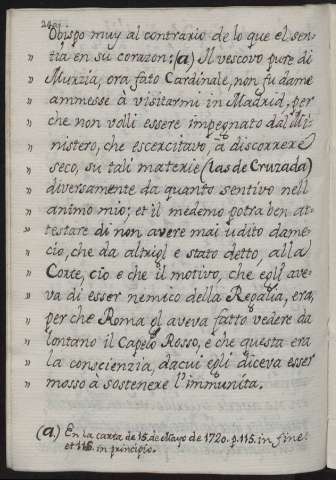 Obispo muy al contrario de lo que el sen-
tia en su corazon: (a) Il vescovo pure di
" Murzia, ora fato Cardinale, non fu dame
" ammesse à visitarmi in Madrid, per
" che non volli essere impegnato dal Mi-
" nistero, che escercitavo, à discorrere
" seco, su tali materie (las de Cruzada)
" diversamente da quanto sentivo nell
" animo mio; et il medemo potra ben at-
" testare di non avere mai udito dame
" cio, che da altrigl e stato detto, alla
" Corte, cio e che il motivo, che egli ave-
" va di esser nemico della Regalia, era,
" per che Roma gl aveva fatto vedere da
" lontano il Capelo Rosso, e che questa era
" la conscienzia, dacui egli diceva esser
" mosso à sostenere l'immunita.
(a.) En la carta de 15 de Mayo de 1720. p. 115. in fine
et 116. in principio.